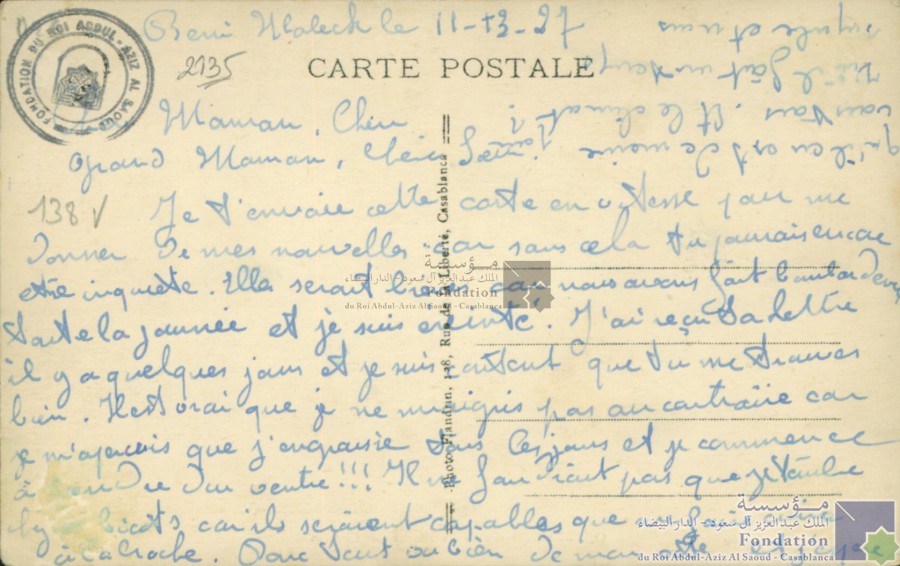 Beni Maleck le 11-13-27
2135
CARTE POSTALE
FONDATION DU ROI ABDUL-AZIZ AL SAOUD
Maman, Chère
Grand Maman, Chère
138 V
Je t'envoie cette carte en vitesse pour me
donner de mes nouvelles car sans cela tu jamais encore
être inquiète. Elle serait brève car nous avons fait
toute la journée et je suis éreinté. J'ai reçu ta lettre
il y a quelques jours et je suis content que tu me trouves
bien. Il est vrai que je ne maigris pas au contraire car
je m'aperçois que j'engraisse tous les jours et je commence
à prendre du ventre!!! Il ne faudrait pas que je tombe
car ils seraient capables que
à la broche. Donc tout va bien de mon côté et j'espère
qu'il en est de même
vous tous. Et le climat
il fait un temps
et nous
Photo Flandrin, 128, Rue de la Liberté, Casablanca
مؤسسة
الملك عبد العزيز آل سعود - الدار البيضاء
Fondation
du Roi Abdul-Aziz Al Saoud - Casablanca
مؤسسة
الملك عبد العزيز آل سعود - الدار البيضاء
Fondation
du Roi Abdul-Aziz Al Saoud - Casablanca